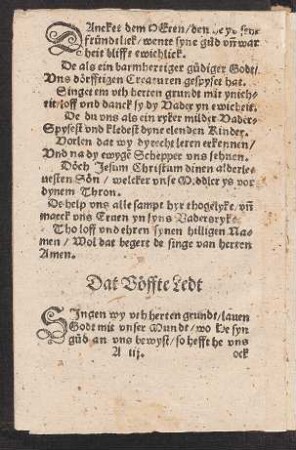 DAncket dem HEren/den he ys seer
fründtlick/ wente syne güd vñ war
heit blifft ewichlick.
De als ein barmhertiger güdiger Godt/
Vns dörfftigen Creaturen gespyset hat.
Singet em vth herten grundt mit ynich-
eit/loff vnd danck sy dy Vader yn ewicheit.
De du vns als ein ryker milder Vader
Spysest vnd kledest dyne elenden Kinder.
Vorlen dat wy dy recht leren erkennen/
Vnd na dy ewyge Schepper vns sehnen.
Döch Jesum Christum dinen alderle-
uesten Sön/ welcker vnse Middler ys vor
dynem Thron.
De help vns alle sampt hyr thogelyke/ vñ
maeck vns Eruen yn syns Vadersryke.
Tho loff vnd ehren synen hilligen Na-
men/ Wol dat begert de singe van herten
Amen.
Dat Vöffte Ledt
SIngen wy vth herten grundt/lauen
Godt mit vnser Mundt/ wo he syn
güd an vns bewyst/ so hefft he vns
A iij. ock